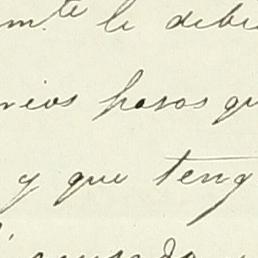 mte le debi
nios pasos qu
y que teng